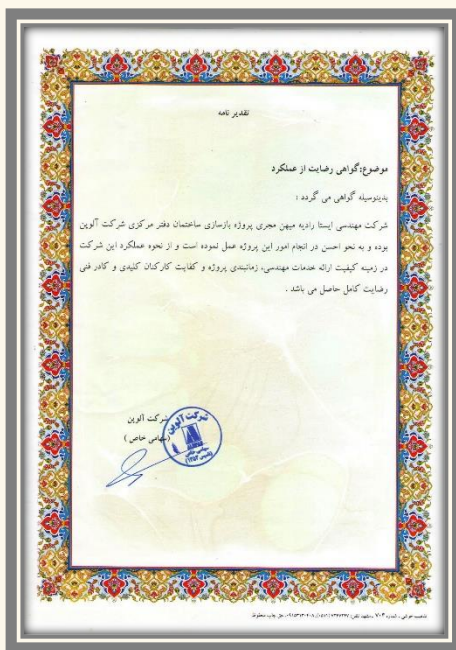 تقدیر نامه
موضوع:گواهی رضایت از عملکرد
بدینوسیله گواهی می گردد :
شرکت مهندسی ایستا رادیه میهن مجری پروژه بازسازی ساختمان دفتر مرکزی شرکت آلوین
بوده و به نحو احسن در انجام امور این پروژه عمل نموده است و از نحوه عملکرد این شرکت
در زمینه کیفیت ارائه خدمات مهندسی، زمانبندی پروژه و کفایت کارکنان کلیدی و کادر فنی
رضایت کامل حاصل می باشد .
شرکت آلوین
(سهامی خاص )
شرکت آلوین
سهامی خاص